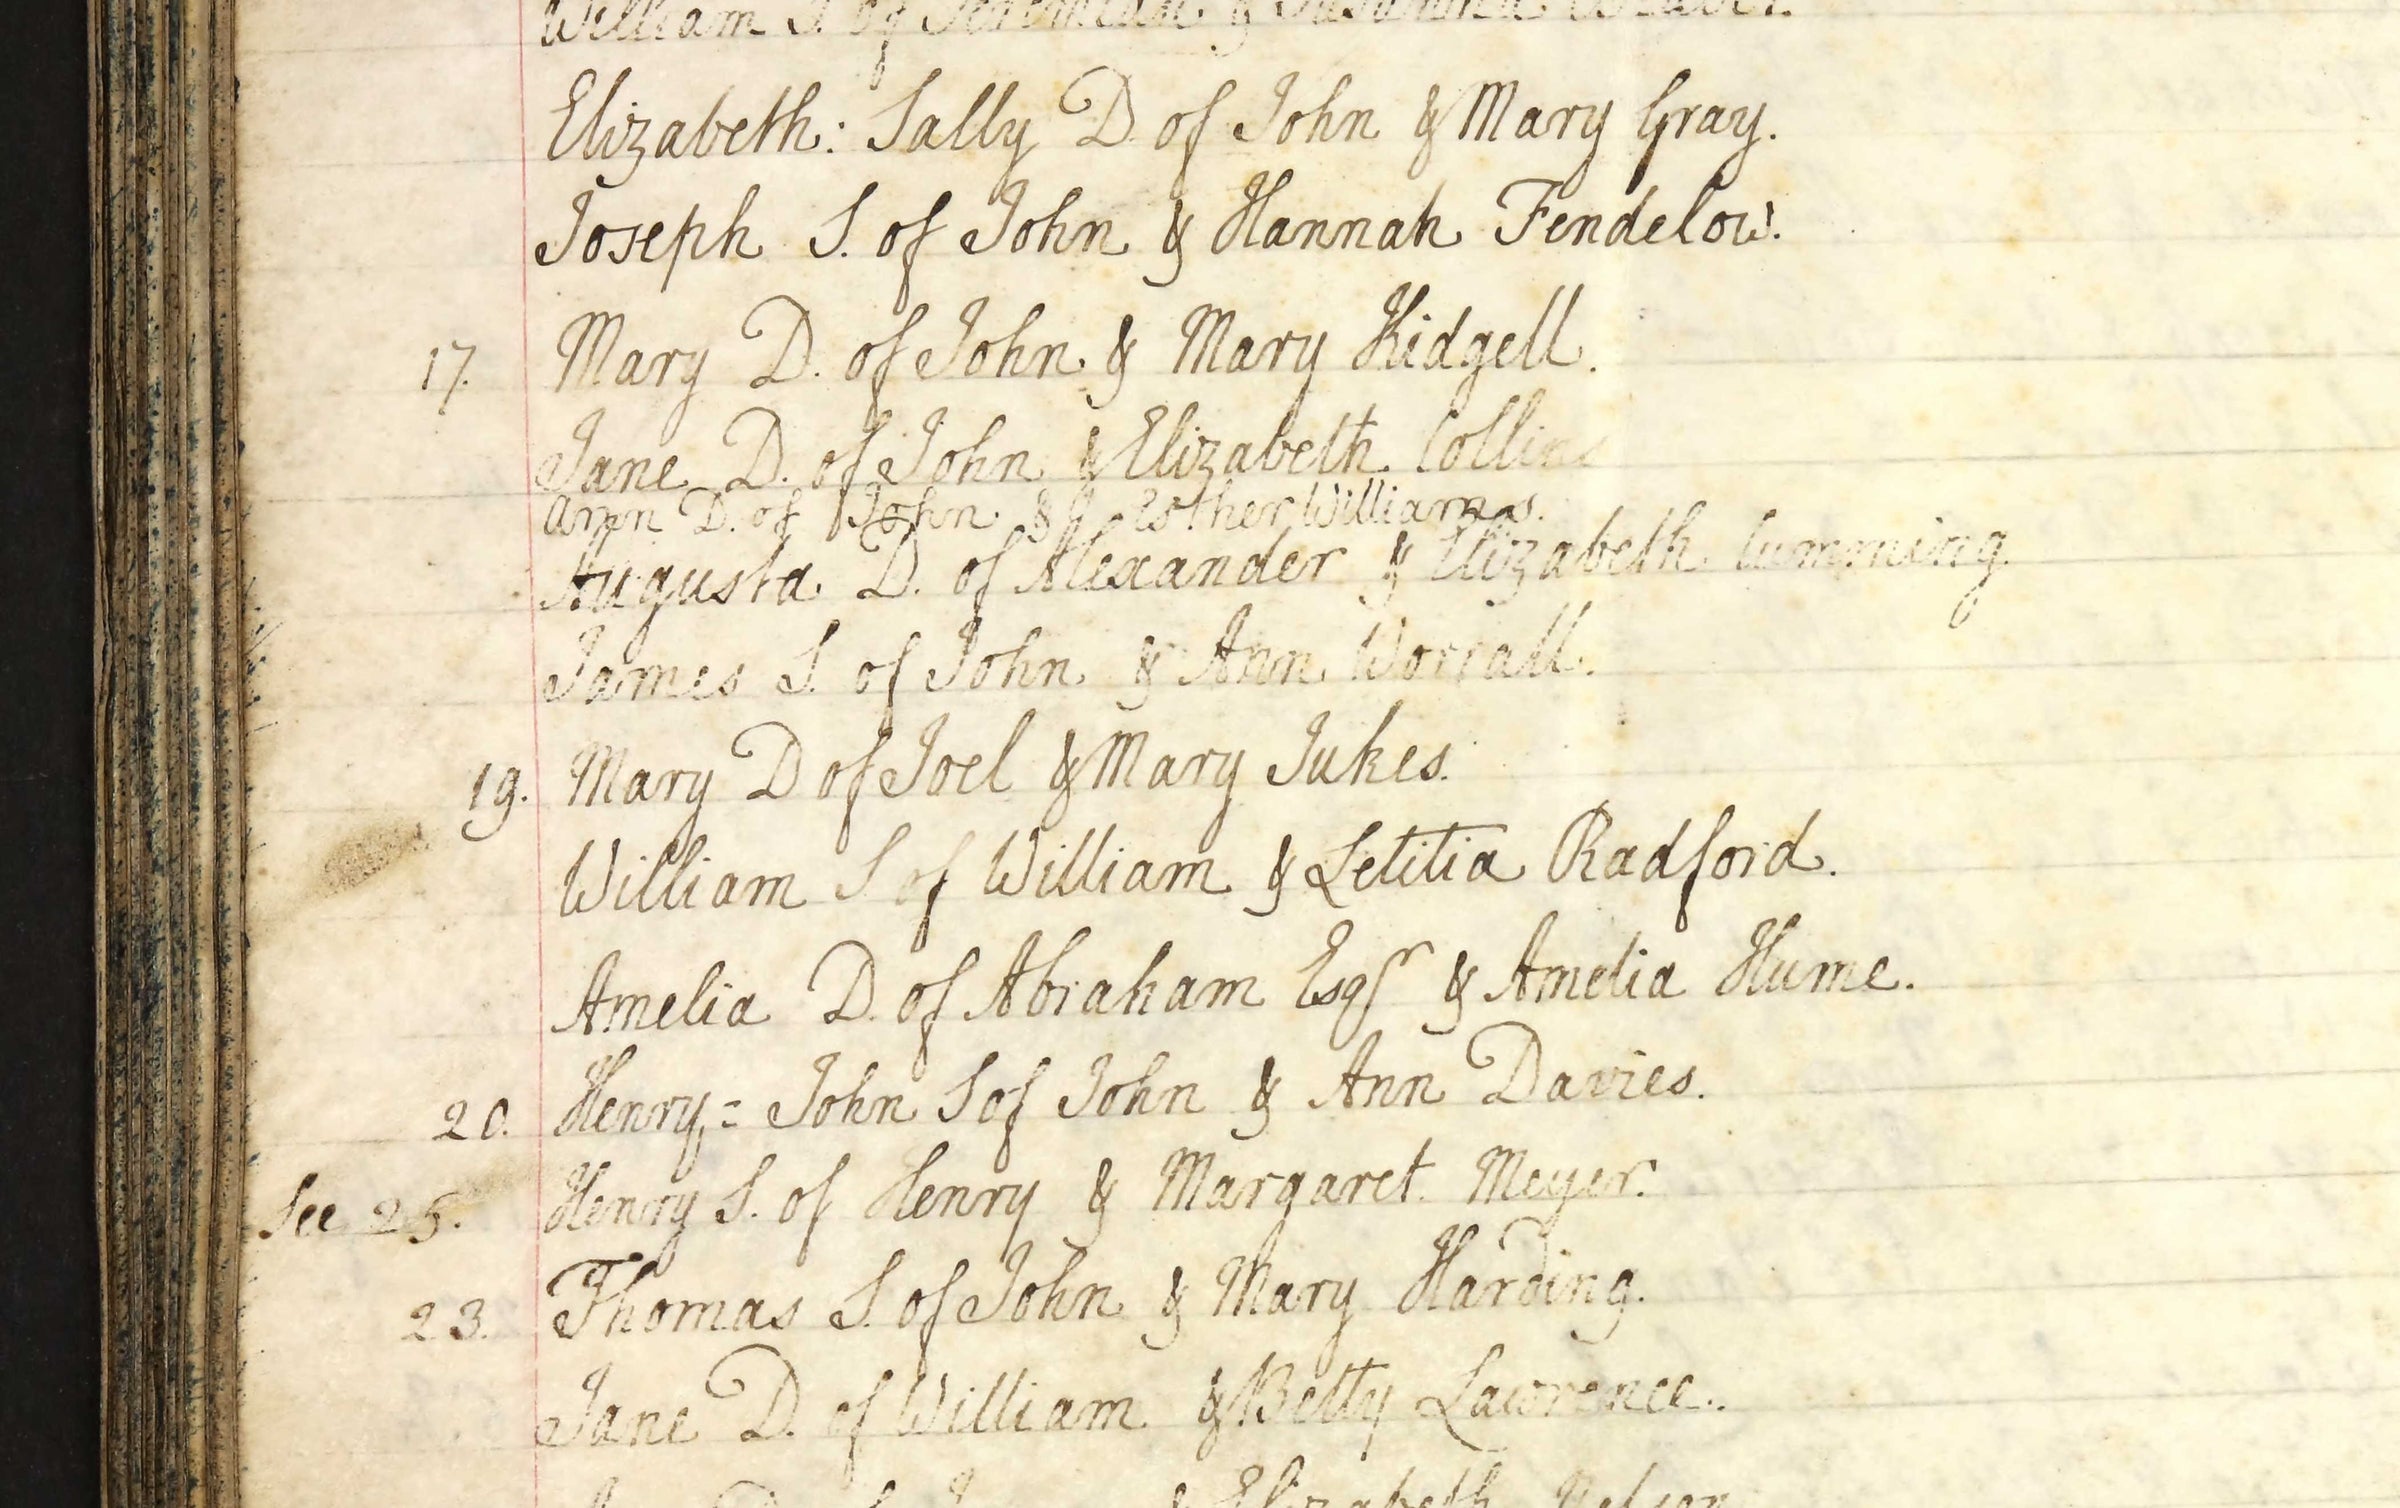 William S. of Jeremiah & Susanna
Elizabeth: Sally D of John & Mary Gray.
Joseph S. of John & Hannah Fendelow.
17. Mary D. of John & Mary Kidgell.
Jane D. of John & Elizabeth Collins
Ann D. of John & Esther Williams.
Augusta D. of Alexander & Elizabeth Cumming.
James S. of John & Ann Worrall.
19. Mary D of Joel & Mary Jukes.
William S of William & Letitia Radford.
Amelia D. of Abraham Esqr & Amelia Hume.
20. Henry = John S of John & Ann Davies.
See 25. Henry S. of Henry & Margaret Meyer.
23. Thomas S. of John & Mary Harding.
Jane D. of William & Betty Lawrence.
Elizabeth Nelson